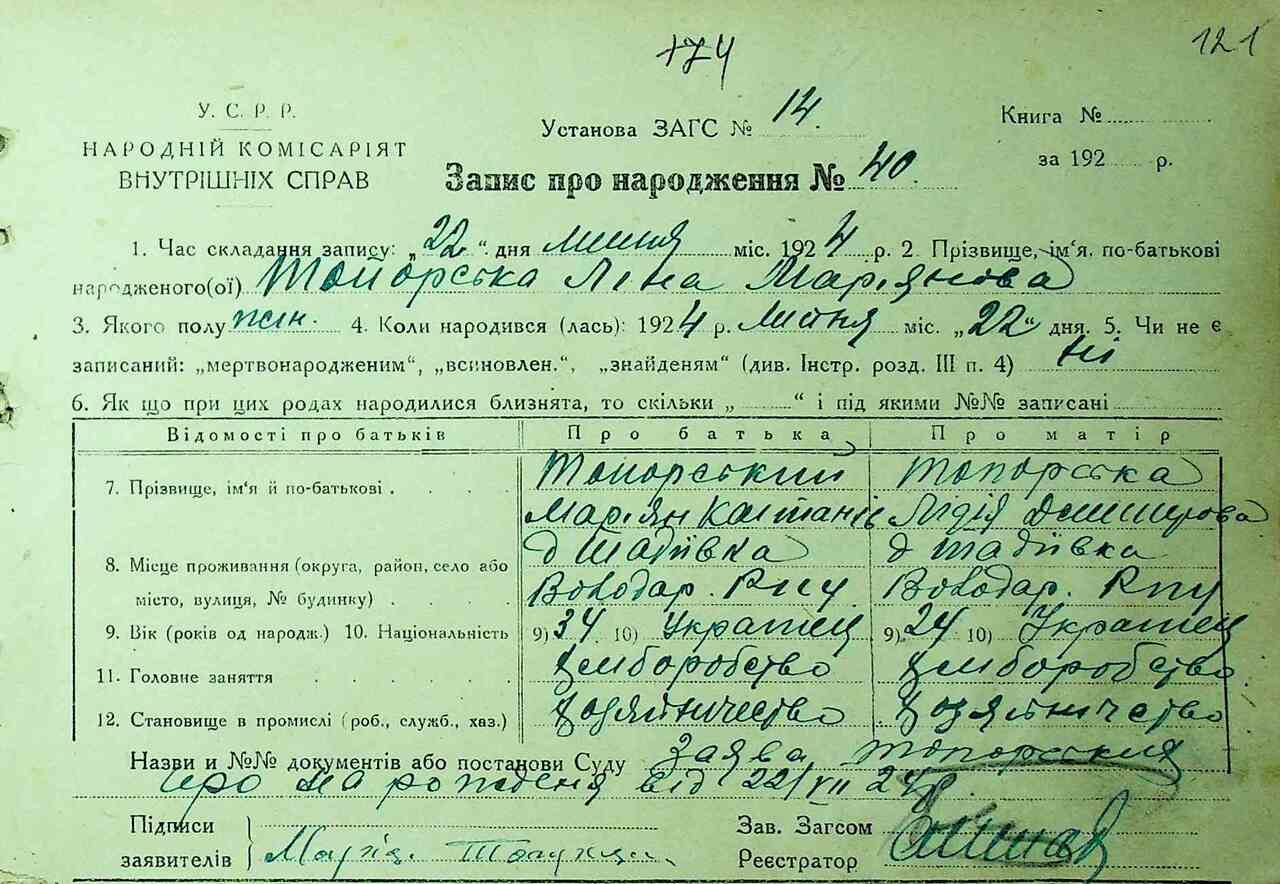 174
121
У. С. Р. Р.
НАРОДНІЙ КОМІСАРІЯТ
ВНУТРІШНІХ СПРАВ
Установа ЗАГС № 14.
Книга №
за 192 р.
Запис про народження № 40.
1. Час складання запису: „22“ дня липня міс. 1924 р. 2. Прізвище, ім‘я, по-батькові
народженого(ої) Топорська Ліна Мар‘янова
3. Якого полу жін. 4. Коли народився (лась): 1924 р. Липня міс. „22“ дня. 5. Чи не є
записаний: „мертвонародженим“, „всиновлен.“, „знайденям“ (див. Інстр. розд. III п. 4) ні
6. Як що при цих родах народилися близнята, то скільки „ “ і під якими №№ записані
Відомості про батьків Про батька Про матір
7. Прізвище, ім‘я й по-батькові . Топорський Топорська
Мар‘ян Лідія
8. Місце проживання (округа, район, село або д Тадіївка д Тадіївка
місто, вулиця, № будинку) . Володар. Рпу Володар. Рпу
9. Вік (років од народж.) 10. Національність 9) 34 10) Українец 9) 24 10) Українец
11. Головне заняття хліборобство хліборобство
12. Становище в промислі (роб., служб., хаз.) хозяйничество хозяйничество
Назви и №№ документів або постанови Суду Заява
про народженя від 22/VII 24р.
Підписи
заявителів Марія
Зав. Загсом
Реєстратор